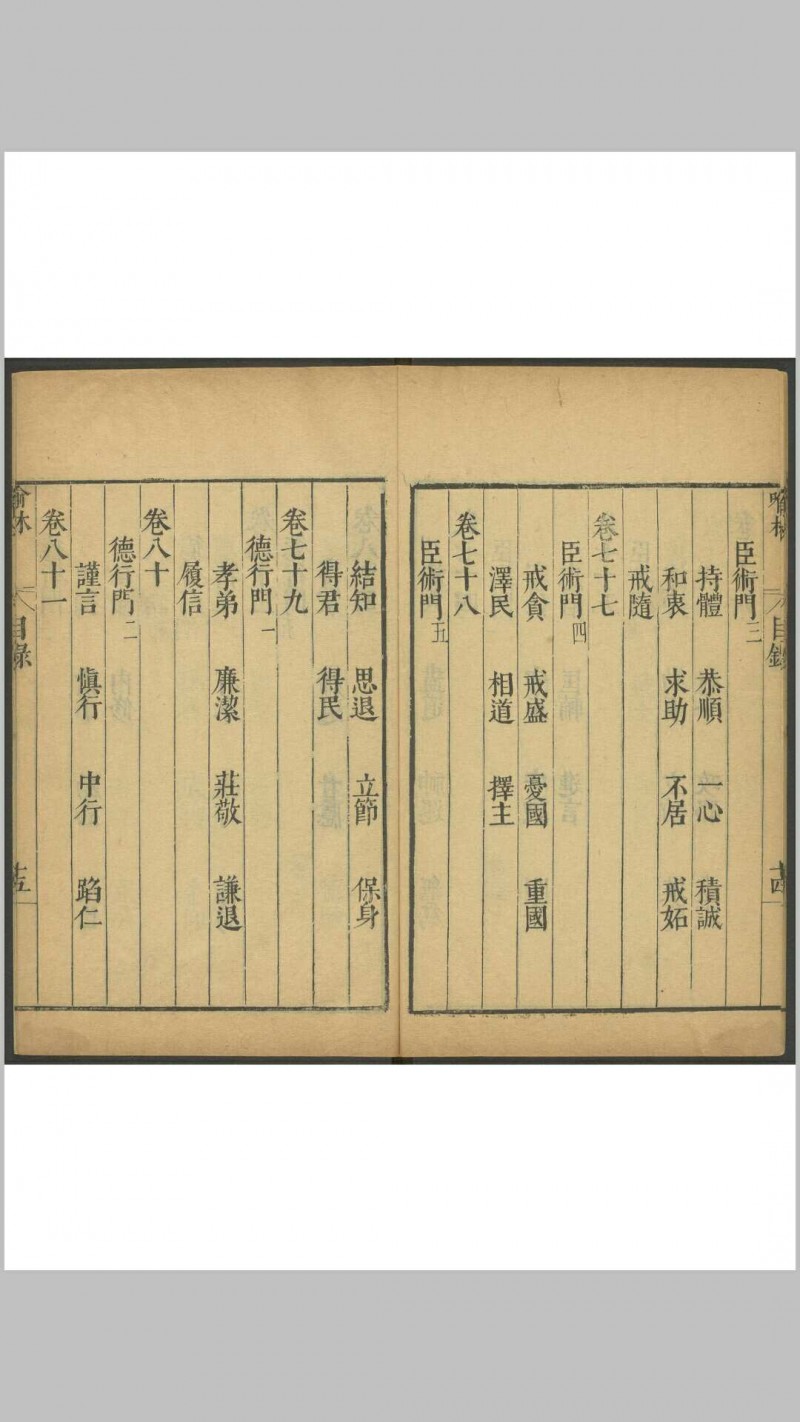 臣術門三
持體 恭順 一心 積誠
和衷 求助 不居 戒妬
戒隨
卷七十七
臣術門四
戒貪 戒盛 憂國 重國
澤民 相道 擇主
卷七十八
臣術門五
結知 思退 立節 保身
得君 得民
卷七十九
德行門一
孝弟 廉潔 莊敬 謙退
履信
卷八十
德行門二
謹言 愼行 中行 蹈仁
卷八十一
喻林 目錄 十五